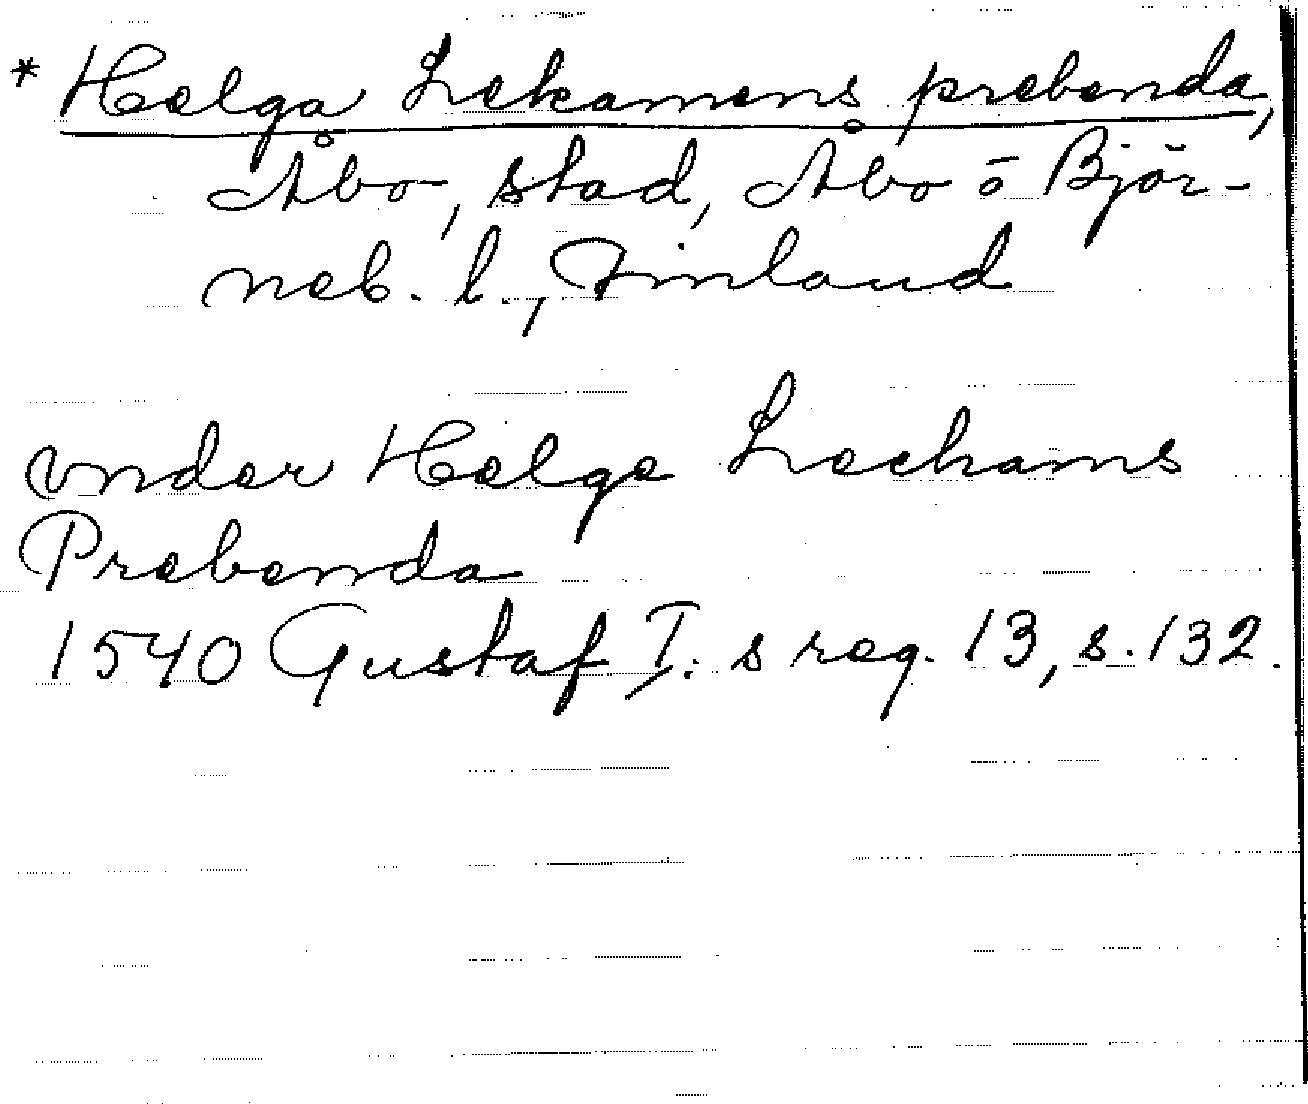 * Helga Lekamens prebenda,
Åbo, stad, Åbo ō Björ-
neb. l., Finland
vnder Helge Leckams
Prebenda
1540 Gustaf I:s reg. 13, s. 132.